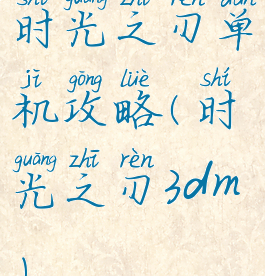 shí guāng zhī rèn dān
时光之刃单
jī gōng lüè shí
机攻略(时
guāng zhī rèn
光之刃3dm
)